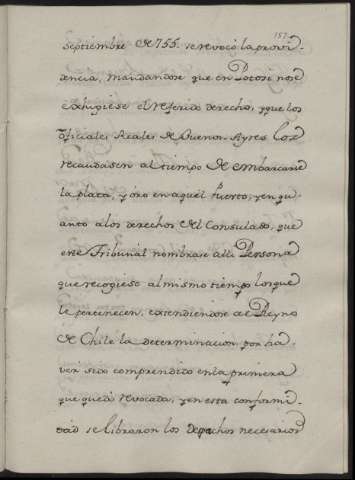 157
Septiembre de 755. se revocó la provi-
dencia, mandandose que en Potosi no se
exhigiese el referido derecho, y que los
oficiales Reales de Buenos Ayres los
recaudasen al tiempo de embarcarse
la plata, y oro en aquel Puerto, y en qu-
anto a los derechos del Consulado, que
este Tribunal nombrase alli Persona
que recogiese al mismo tiempo los que
le pertenecen, extendiendose al Reyno
de Chile la determinacion por ha-
ver sido comprendido en la primera
que quedó revocada, y en esta conformi-
dad se libraron los Despachos necesarios